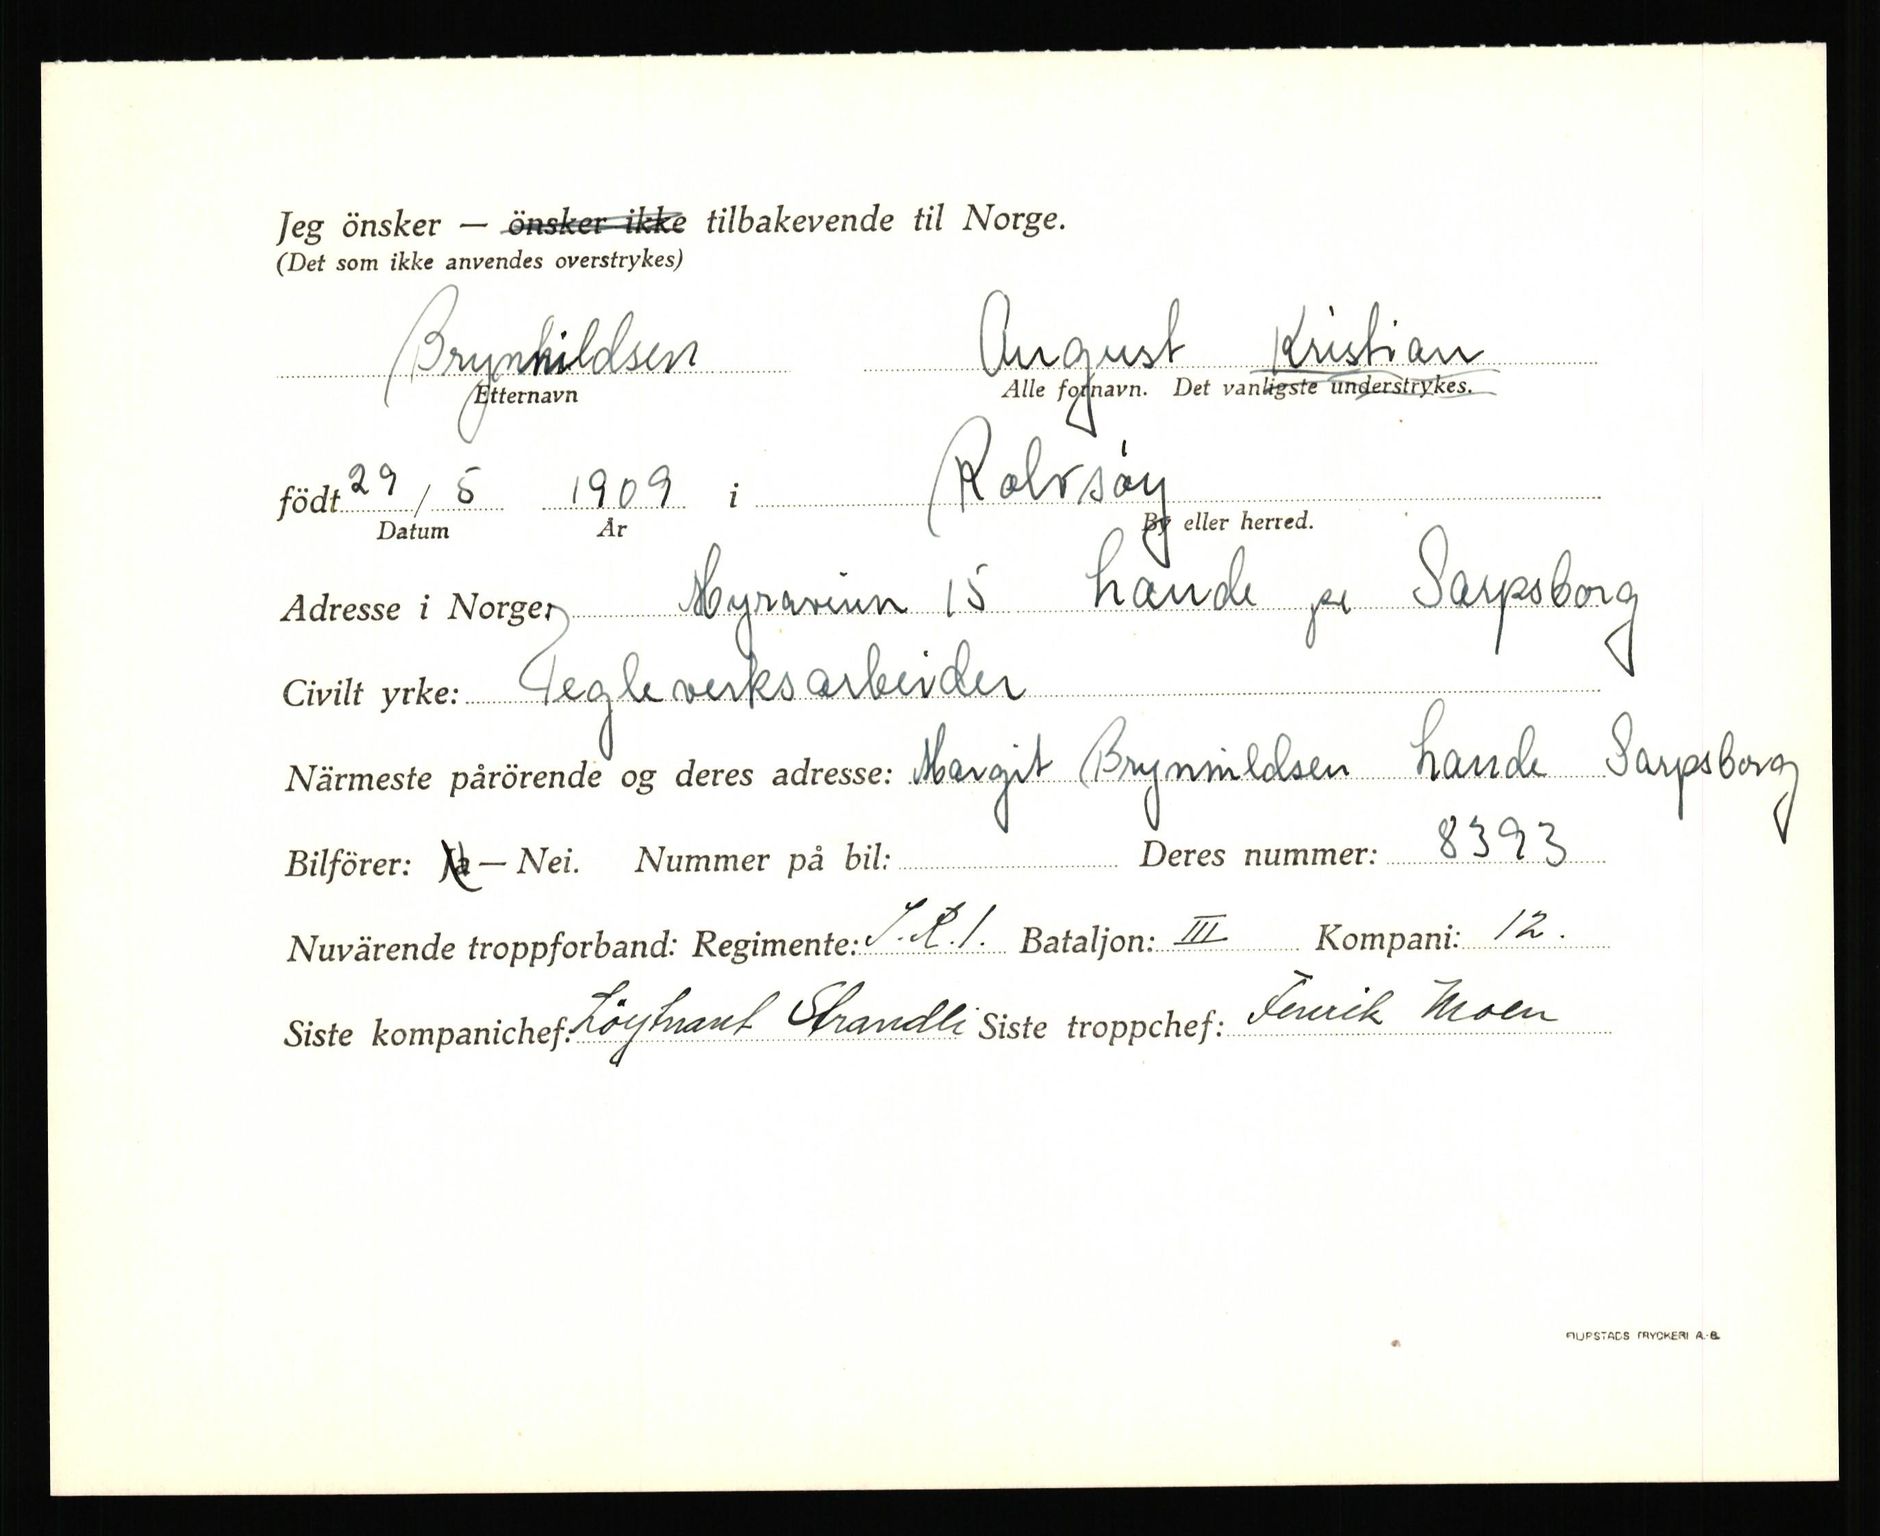 Jeg önsker — önsker ikke tilbakevende til Norge.
(Det som ikke anvendes overstrykes)
Brynhildsen August Kristian
Etternavn Alle fornavn. Det vanligste understrykes.
födt 29 / 5 1909 i Rolvsöy
Datum År By eller herred.
Adresse i Norge: 15 hande pr Sarpsborg
Civilt yrke: Tegleverksarbeider
Närmeste pårörende og deres adresse: Margit Brynhildsen hande Sarpsborg
Bilförer: Ja — Nei. Nummer på bil: Deres nummer: 8393
Nuvärende troppforband: Regimente: I.R.1. Bataljon: III Kompani: 12.
Siste kompanichef: Löytnant Strandli Siste troppchef: Fenrik Moen
RUPSTADS TRYCKERI A.-B.